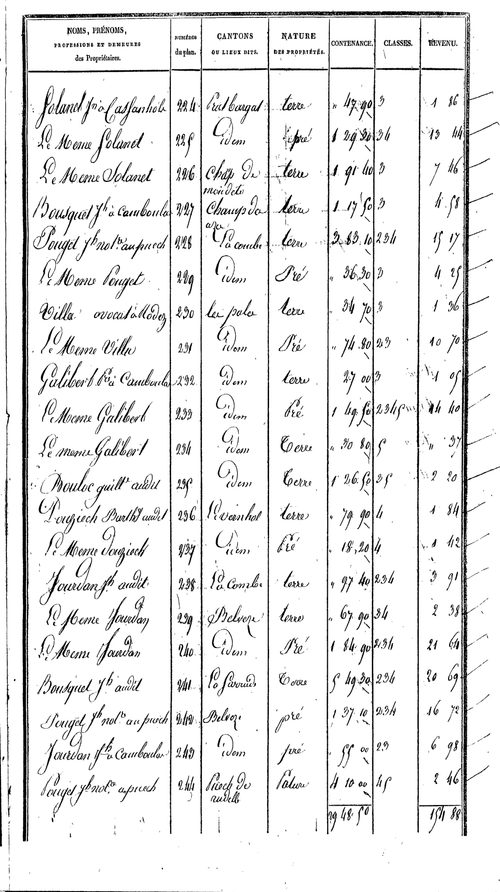 NOMS, PRÉNOMS, PROFESSIONS ET DEMEURES des Propriétaires. NUMÉROS du plan. CANTONS OU LIEUX DITS. NATURE DES PROPRIÉTÉS. CONTENANCE. CLASSES. REVENU.
Solanet à Cassanhole 224 terre " 47 90 3 1 86
Le Meme Solanet 225 idem pré 1 29 34 13 44
Le Meme Solanet 226 Champ de mondet terre 1 91 40 3 7 46
Bousquet Jh à Camboula 227 Champs de terre 1 17 50 3 4 58
Pouget Jh notre au puech 228 La combe terre 3 83 10 234 15 17
Le Meme Pouget 229 idem Pré " 36 30 3 4 25
Villa avocat à Rodez 230 la pala terre " 34 70 3 1 36
Le Meme Villa 231 idem Pré " 74 80 23 10 70
Galibert à Camboula 232 idem terre " 27 00 3 1 05
Le Meme Galibert 233 idem Pré 1 49 50 2345 14 40
Le meme Galibert 234 idem Terre " 30 80 5 " 37
Bouloc guillme audit 235 idem Terre 1 26 50 35 2 20
Douziech Barthy audit 236 terre " 79 90 4 1 84
Le Meme Douziech 237 idem Pré " 18 20 4 1 42
Jourdan Jh audit 238 La Combe terre " 97 40 234 3 91
Le Meme Jourdan 239 Belveze terre " 67 90 34 2 38
Le Meme Jourdan 240 idem Pré 1 84 90 234 21 64
Bousquet Jh audit 241 Terre 5 49 30 234 20 69
Pouget Jh notre au puech 242 Belveze pré 1 37 10 234 16 72
Jourdan Jh à Camboula 243 idem pré " 55 00 23 6 98
Pouget Jh notre au puech 244 Puech de Pature 4 10 00 45 2 46
29 48 50 154 88